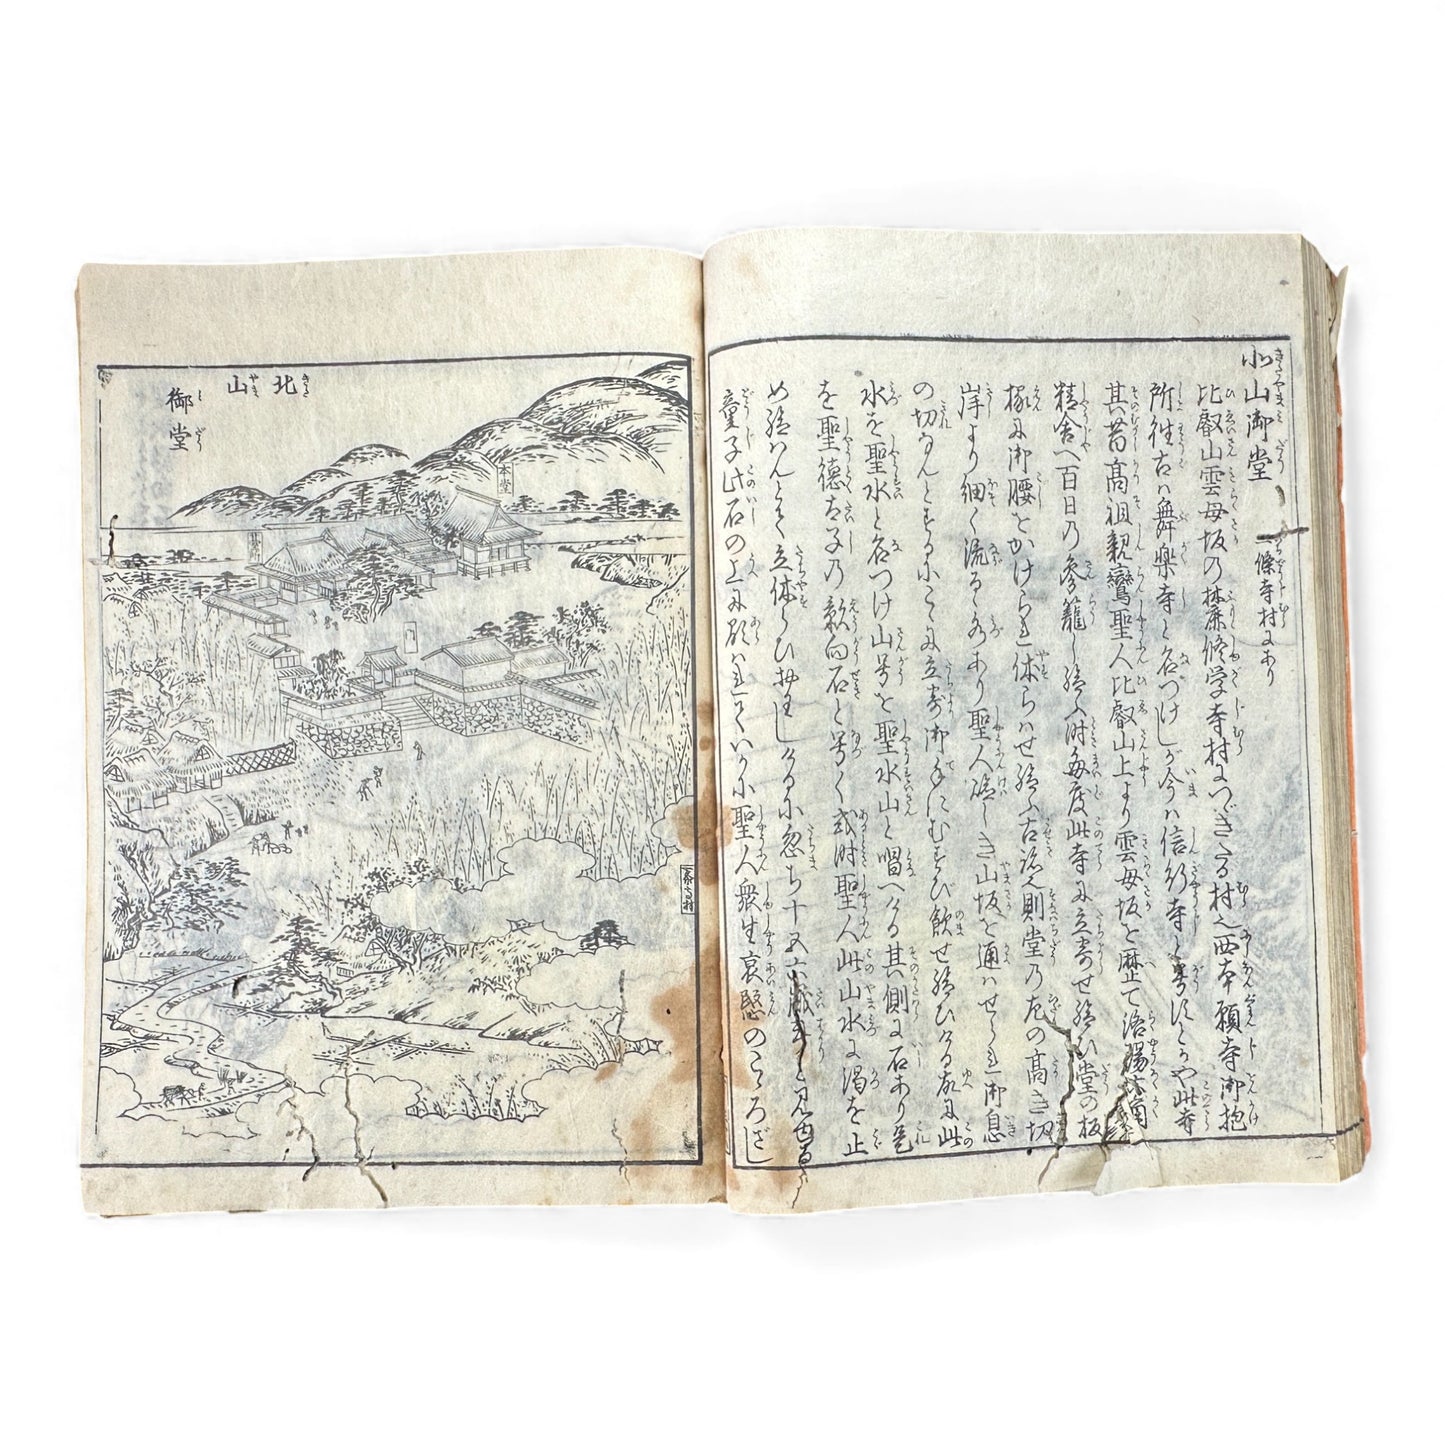 北山御堂 一條寺村にあり
比叡山雲母坂の麓修学寺村につゞきたる村之西本願寺御抱
所往古ハ舞樂寺と名づけしが今ハ信行寺と号すとかや此寺
其昔髙祖親鸞聖人比叡山上より雲母坂を歴て洛陽六角
精舎へ百日の参籠し給ふ時毎度此寺に立寄せ給ひ堂の板
椽に御腰をかけられ休らハせ給ふ古跡之則堂の左の髙き切
岸より細く流るゝ水あり聖人嶮しき山坂を通ハせられ御息
の切なんとするにこゝに立寄御手にむすび飲せ給ひける故に此
水を聖水と名つけ山号を聖水山と唱へける其側に石あり是
を聖徳太子の影向石と号く或時聖人此山水に渇を止
め給はんとて立休らひ給ひしけるに忽ち十五六歳
童子此石の上に顕ハれていかに聖人衆生哀愍のこゝろざし
北山
御堂
本堂